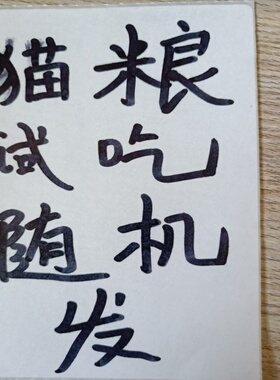 猫粮
试吃
随机
发